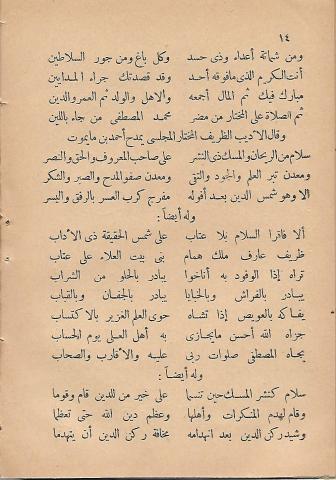 ١٤
ومن شماتة أعداء وذى حسد وكل باغ ومن جور السلاطين
أنت الكريم الذى مافوقه أحد وقد قصدتك جراء المدايين
مبارك فيك ثم المال أجمعه والاهل والولد ثم العمر والدين
ثم الصلاة على المختار من مضر محمد المصطفى من جاء باللين
وقال الاديب الظريف المختار المجلسى يمدح أحمد بن مايموت
سلام من الريحان والمسك ذى النشر على صاحب المعروف والحق والنصر
ومعدن تبر العلم والجود والتقى ومعدن صفو المدح والصبر والشكر
الا وهو شمس الدين بعد أفوله مفرج كرب العسر بالرفق واليسر
وله أيضاً :
ألا فاقرا السلام بلا عتاب على شمس الحقيقة ذى الآداب
ظريف عارف ملك همام بنى بيت العلاء على عتاب
تراه إذا الوفود به أناخوا يبادر بالحلو من الشراب
يبادر بالفراش وبالخبايا يبادر بالجفان وبالقباب
يفاكه بالعويص إذا تشاه حوى العلم الغزير بالاكتساب
جزاه الله أحسن مايجازى به أهل العلى يوم الحساب
بجاه المصطفى صلوات ربى عليه والأقارب والصحاب
وله أيضاً :
سلام كنشر المسك حين تنسما على خير من للدين قام وقوما
وقام لهدم المنكرات وأهلها وعظم دين الله حتى تعظما
وشيد ركن الدين بعد انهدامه مخافة ركن الدين أن يتهدما